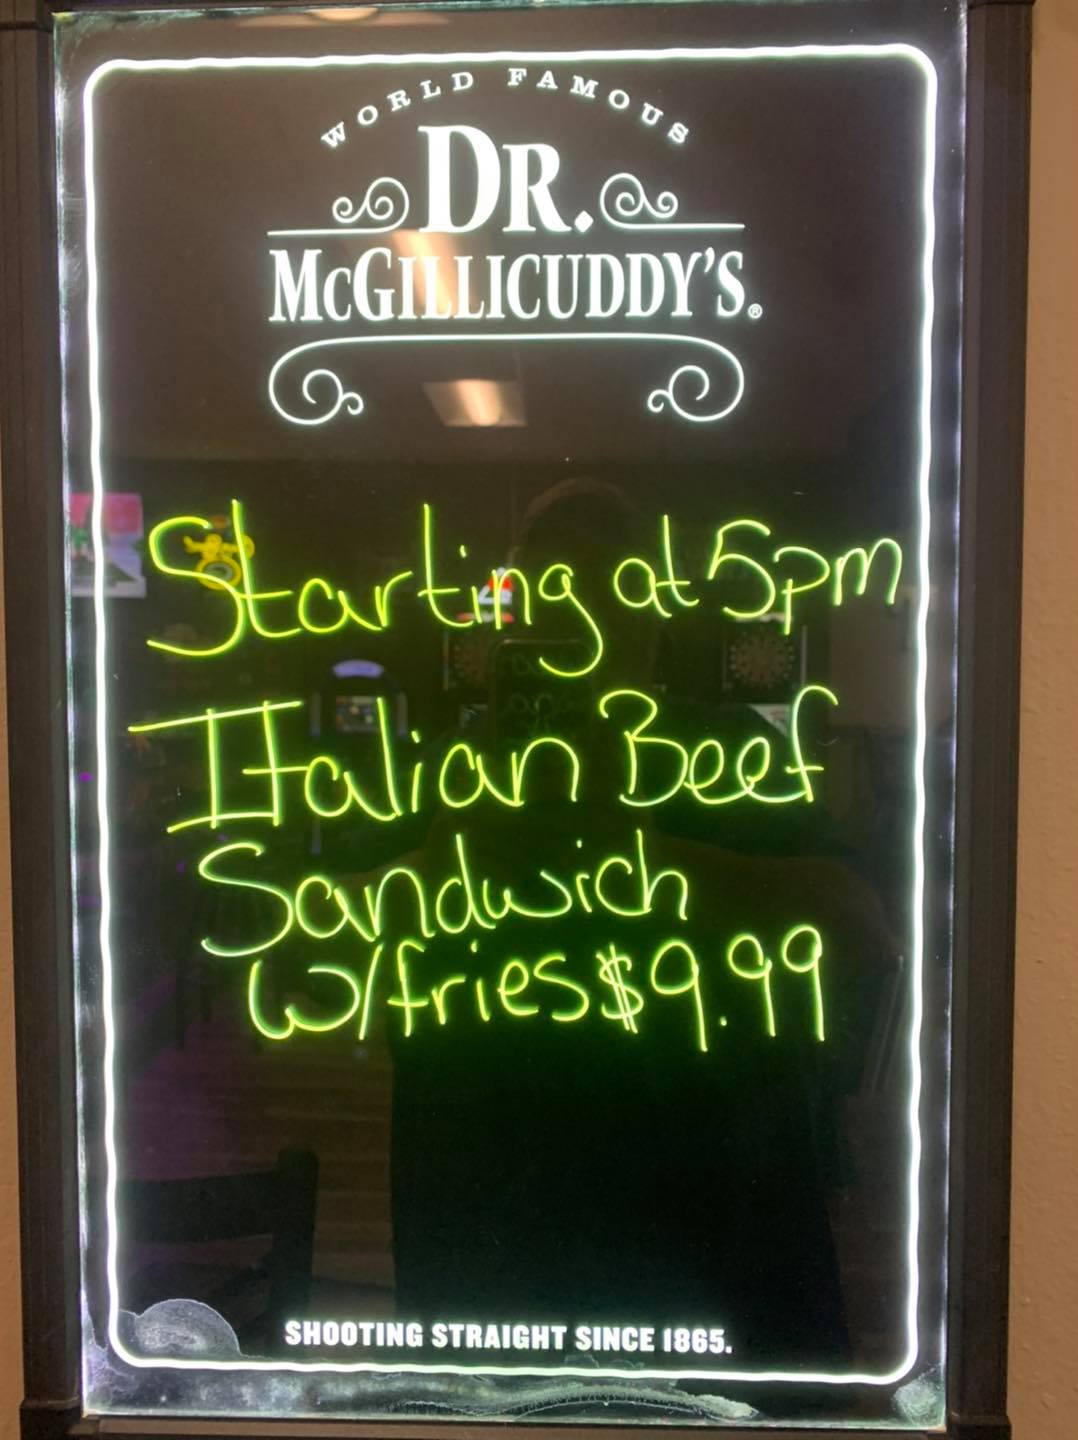 WORLD FAMOUS
DR.
MCGILLICUDDY'S®
Starting at 5pm
Italian Beef
Sandwich
w/fries $9.99
SHOOTING STRAIGHT SINCE 1865.